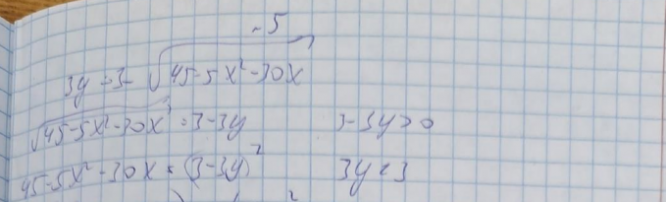 -5
3y = 3 - √(45-5x²-30x)
√(45-5x²-30x) = 3-3y 3-3y>0
45-5x²-30x = (3-3y)² 3y<3